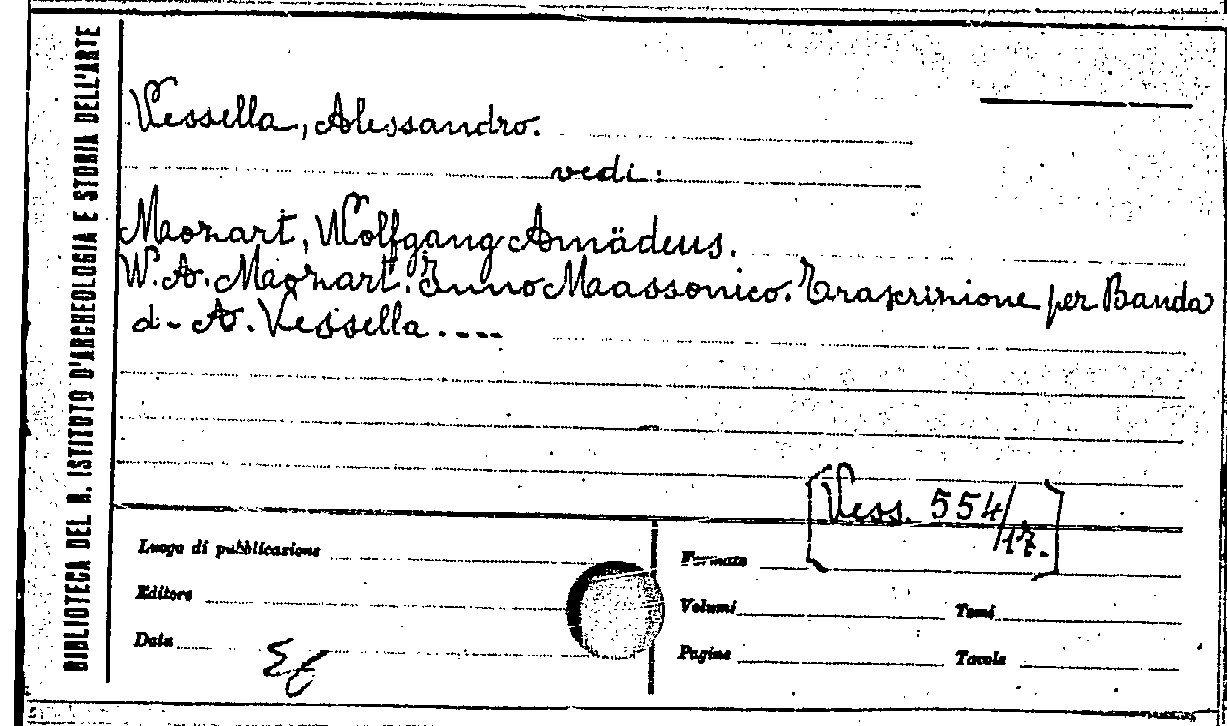 BIBLIOTECA DEL R. ISTITUTO D'ARCHEOLOGIA E STORIA DELL'ARTE
Vessella, Alessandro.
vedi:
Mozart, Wolfgang Amädeus.
W. A. Mozart. Inno Massonico. Trascrizione per Banda
di A. Vessella. ----
[Vess. 554/17.]
Luogo di pubblicazione
Editore
Data
Formato
Volumi Tomi
Pagine Tavole